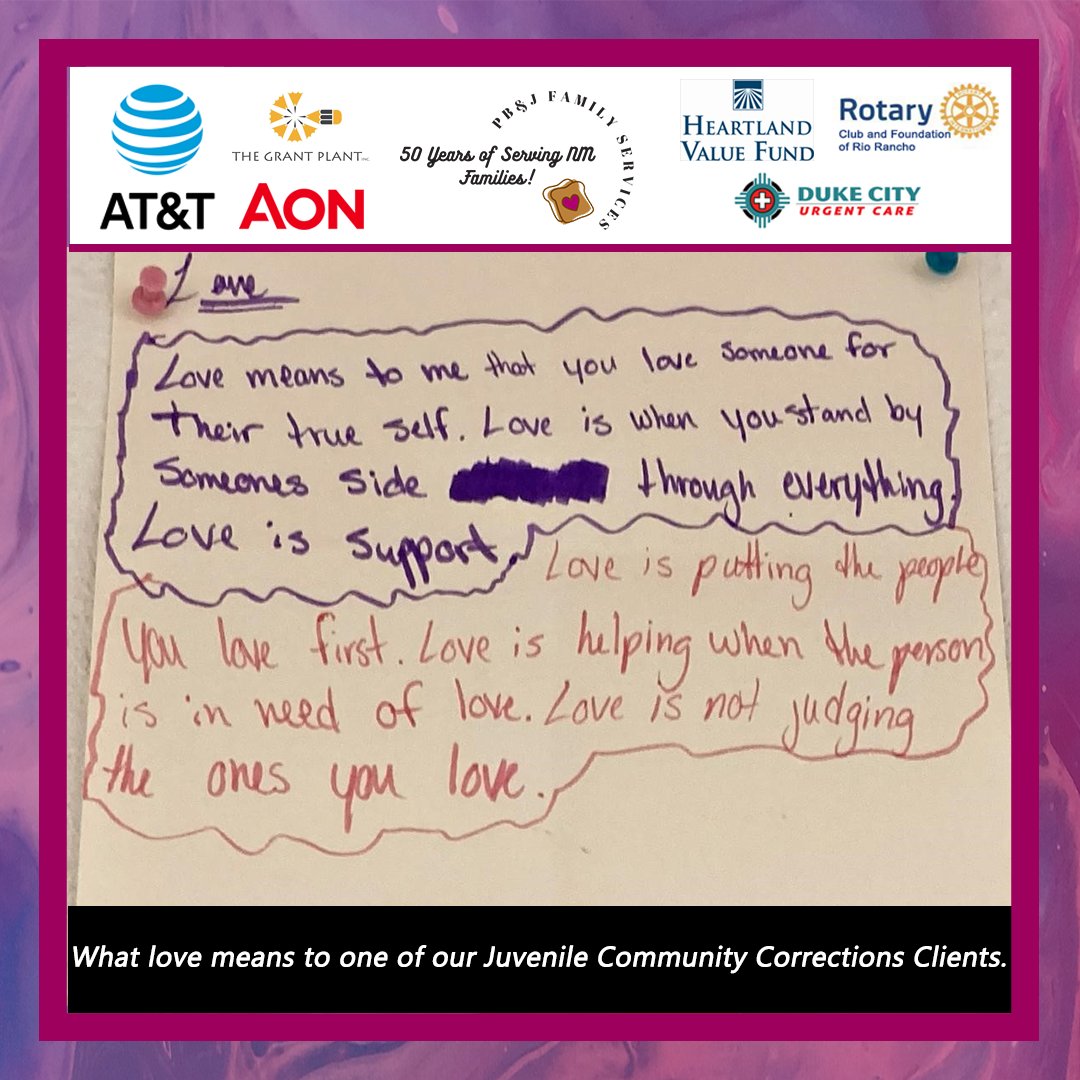 AT&T
THE GRANT PLANT INC
AON
50 Years of Serving NM
Families!
PB&J FAMILY SERVICES
HEARTLAND
VALUE FUND
Rotary
Club and Foundation
of Rio Rancho
DUKE CITY
URGENT CARE
Love
Love means to me that you love someone for
their true self. Love is when you stand by
someones side through everything.
Love is support.
Love is putting the people
you love first. Love is helping when the person
is in need of love. Love is not judging
the ones you love.
What love means to one of our Juvenile Community Corrections Clients.